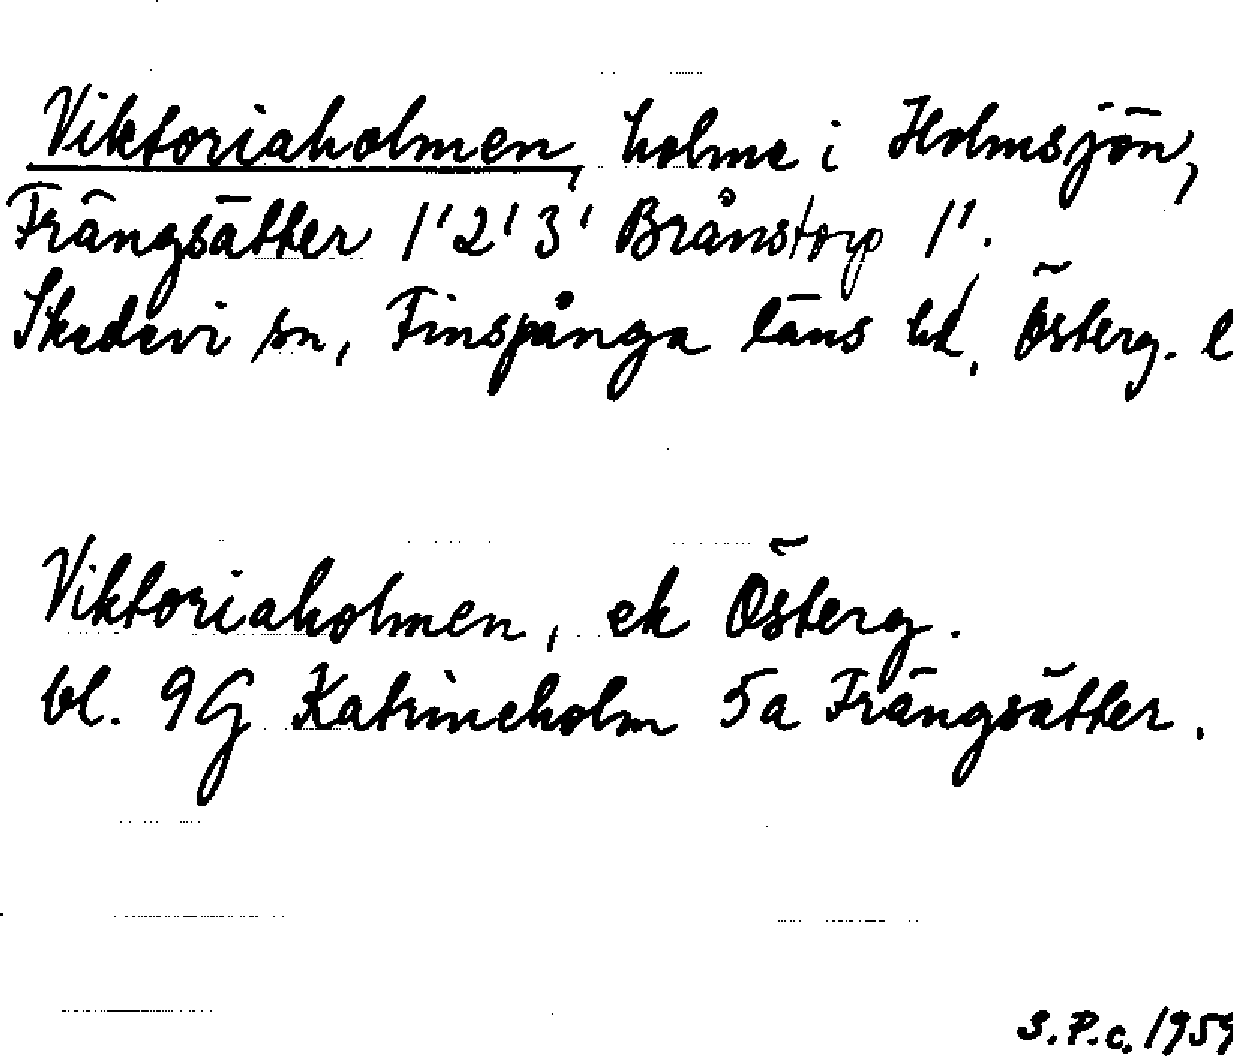 Viktoriaholmen, holme i Holmsjön,
Frängsätter 1'2'3' Brånstorp 1'.
Skedevi sn, Finspånga läns hd, Österg. l
Viktoriaholmen, ek Österg.
bl. 9G Katrineholm 5a Frängsätter.
S.P.c. 1959